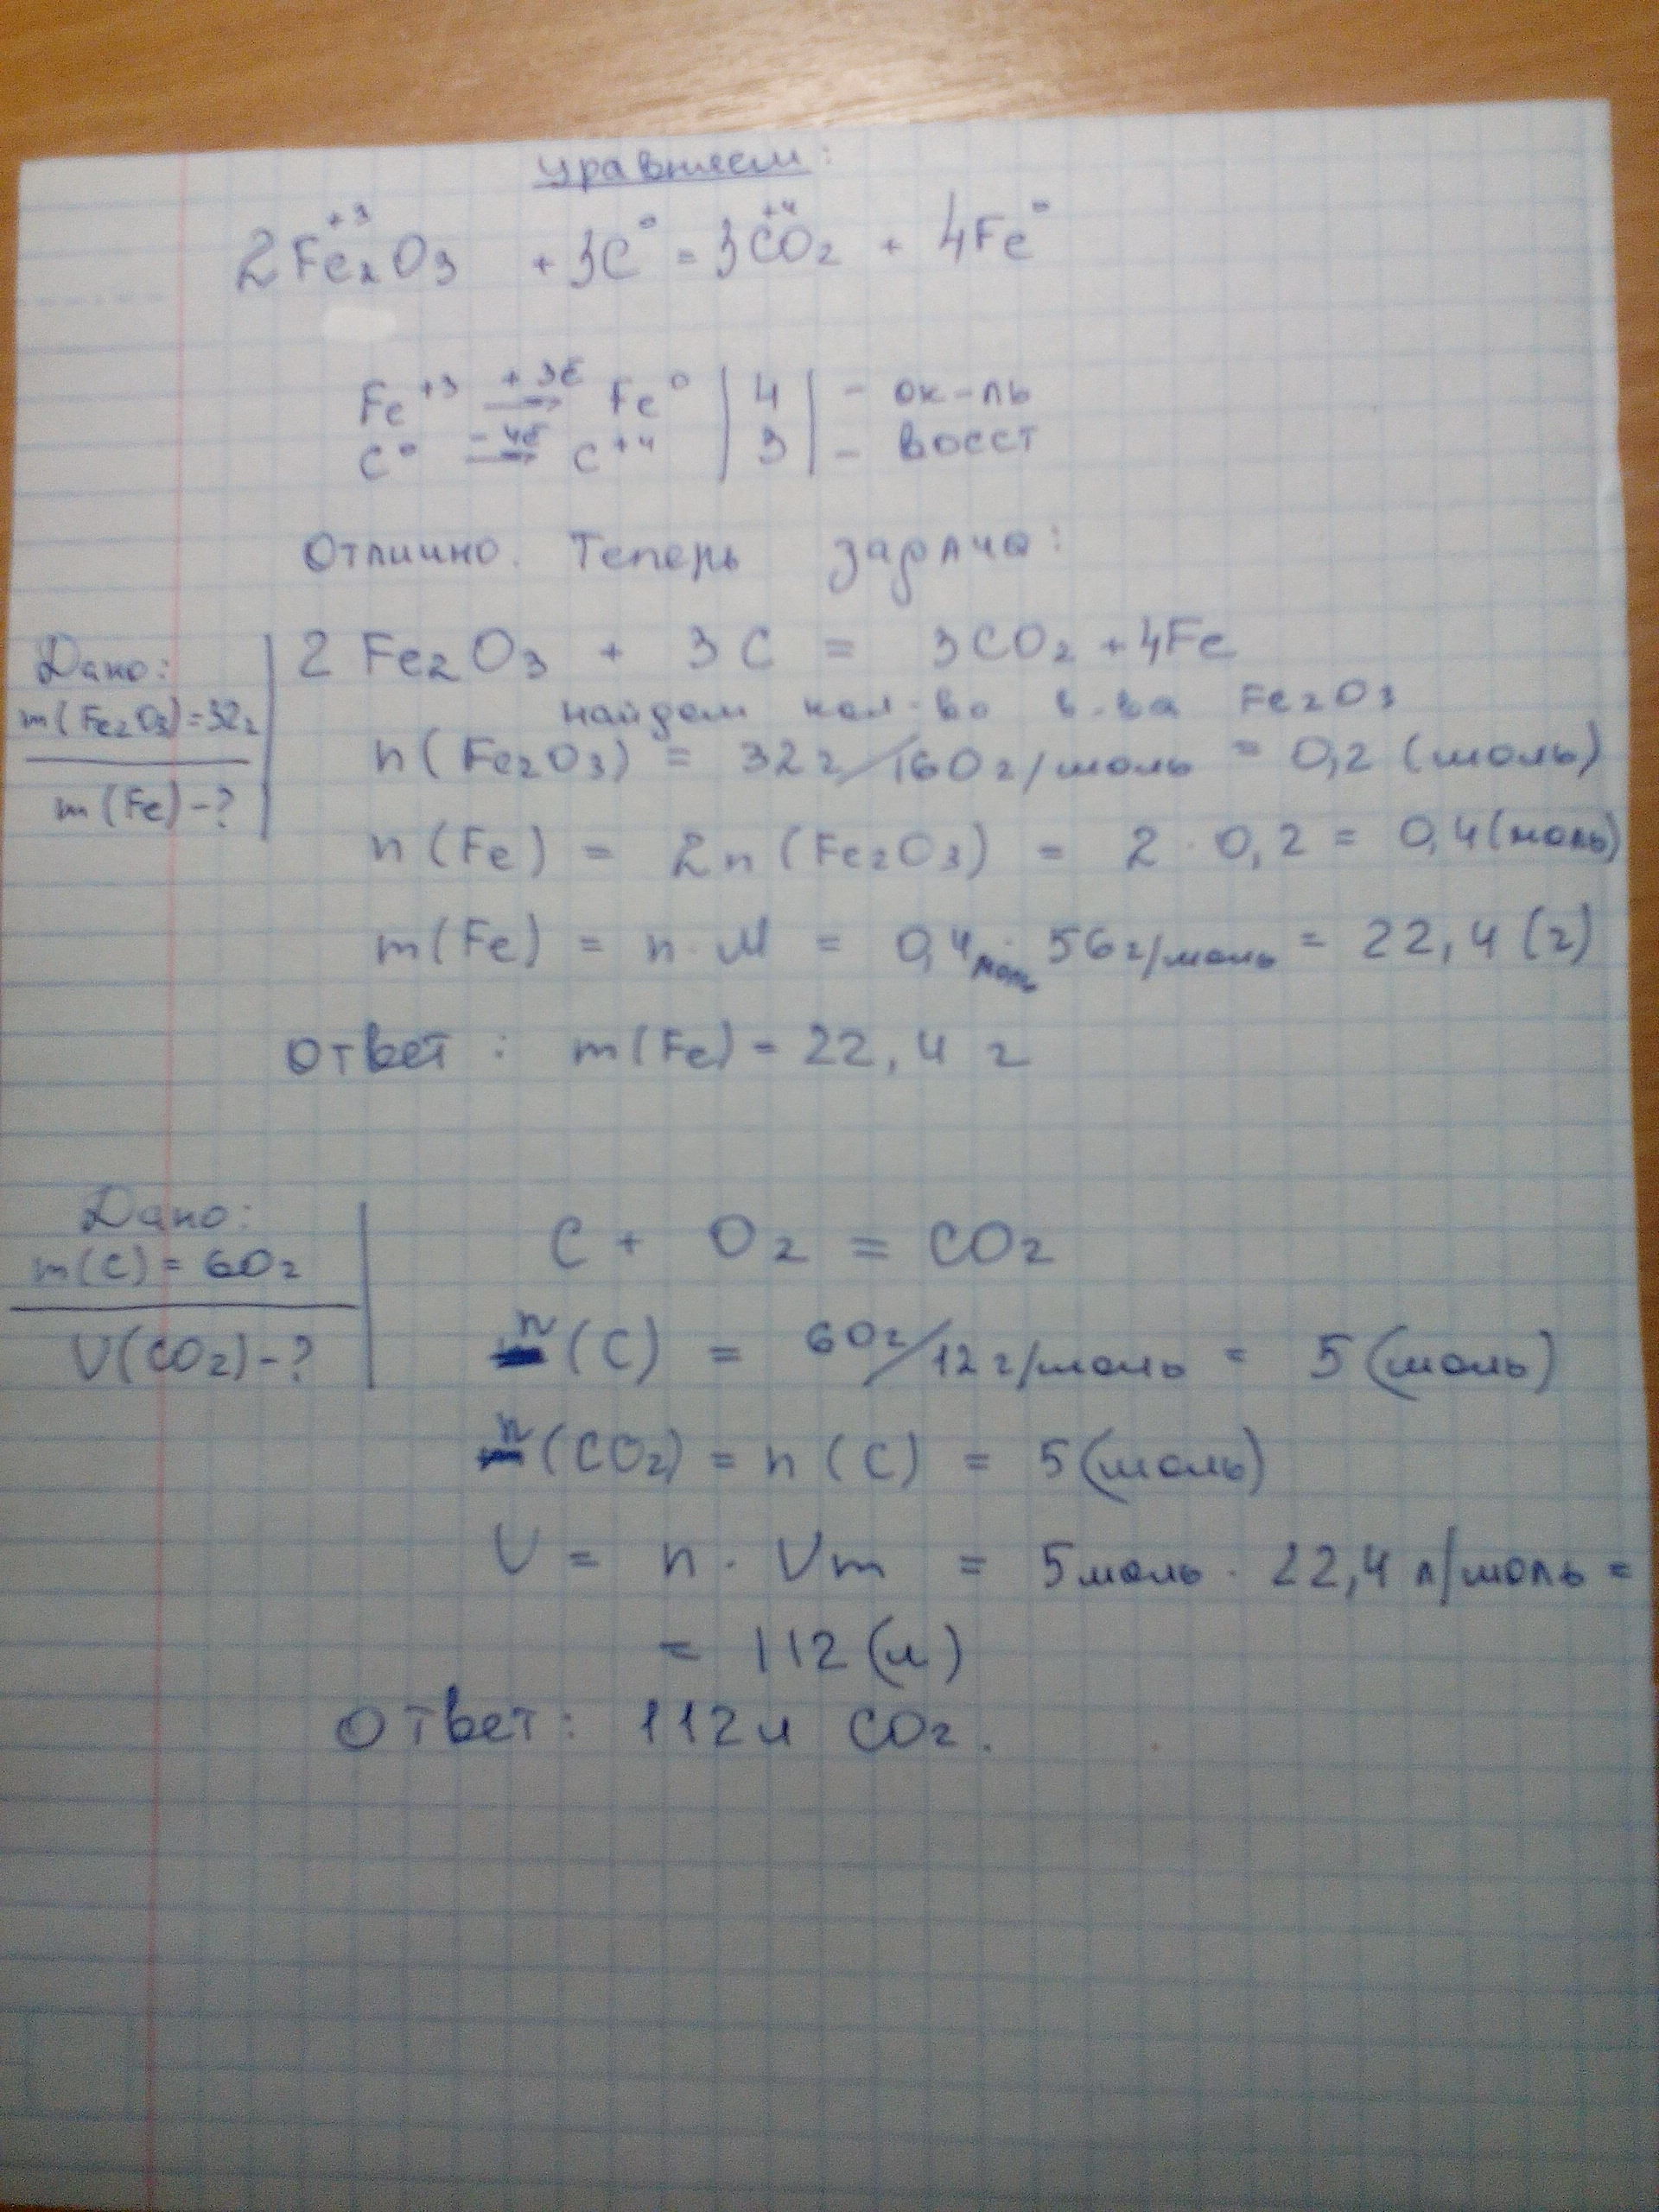 уравняем:
2Fe₂⁺³O₃ + 3C⁰ = 3C⁺⁴O₂ + 4Fe⁰
Fe⁺³ +3ē→ Fe⁰ | 4 | - ок-ль
C⁰ -4ē→ C⁺⁴ | 3 | - восст
Отлично. Теперь задача:
Дано:
m(Fe₂O₃)=32г
m(Fe)-?
2Fe₂O₃ + 3C = 3CO₂ + 4Fe
найдем кол-во в-ва Fe₂O₃
n(Fe₂O₃) = 32г/160г/моль = 0,2 (моль)
n(Fe) = 2n(Fe₂O₃) = 2 · 0,2 = 0,4(моль)
m(Fe) = n · M = 0,4моль · 56г/моль = 22,4(г)
Ответ: m(Fe) = 22,4 г
Дано:
m(C) = 60г
V(CO₂)-?
C + O₂ = CO₂
n(C) = 60г/12г/моль = 5(моль)
n(CO₂) = n(C) = 5(моль)
V = n · Vm = 5моль · 22,4 л/моль =
= 112(л)
Ответ: 112л CO₂.